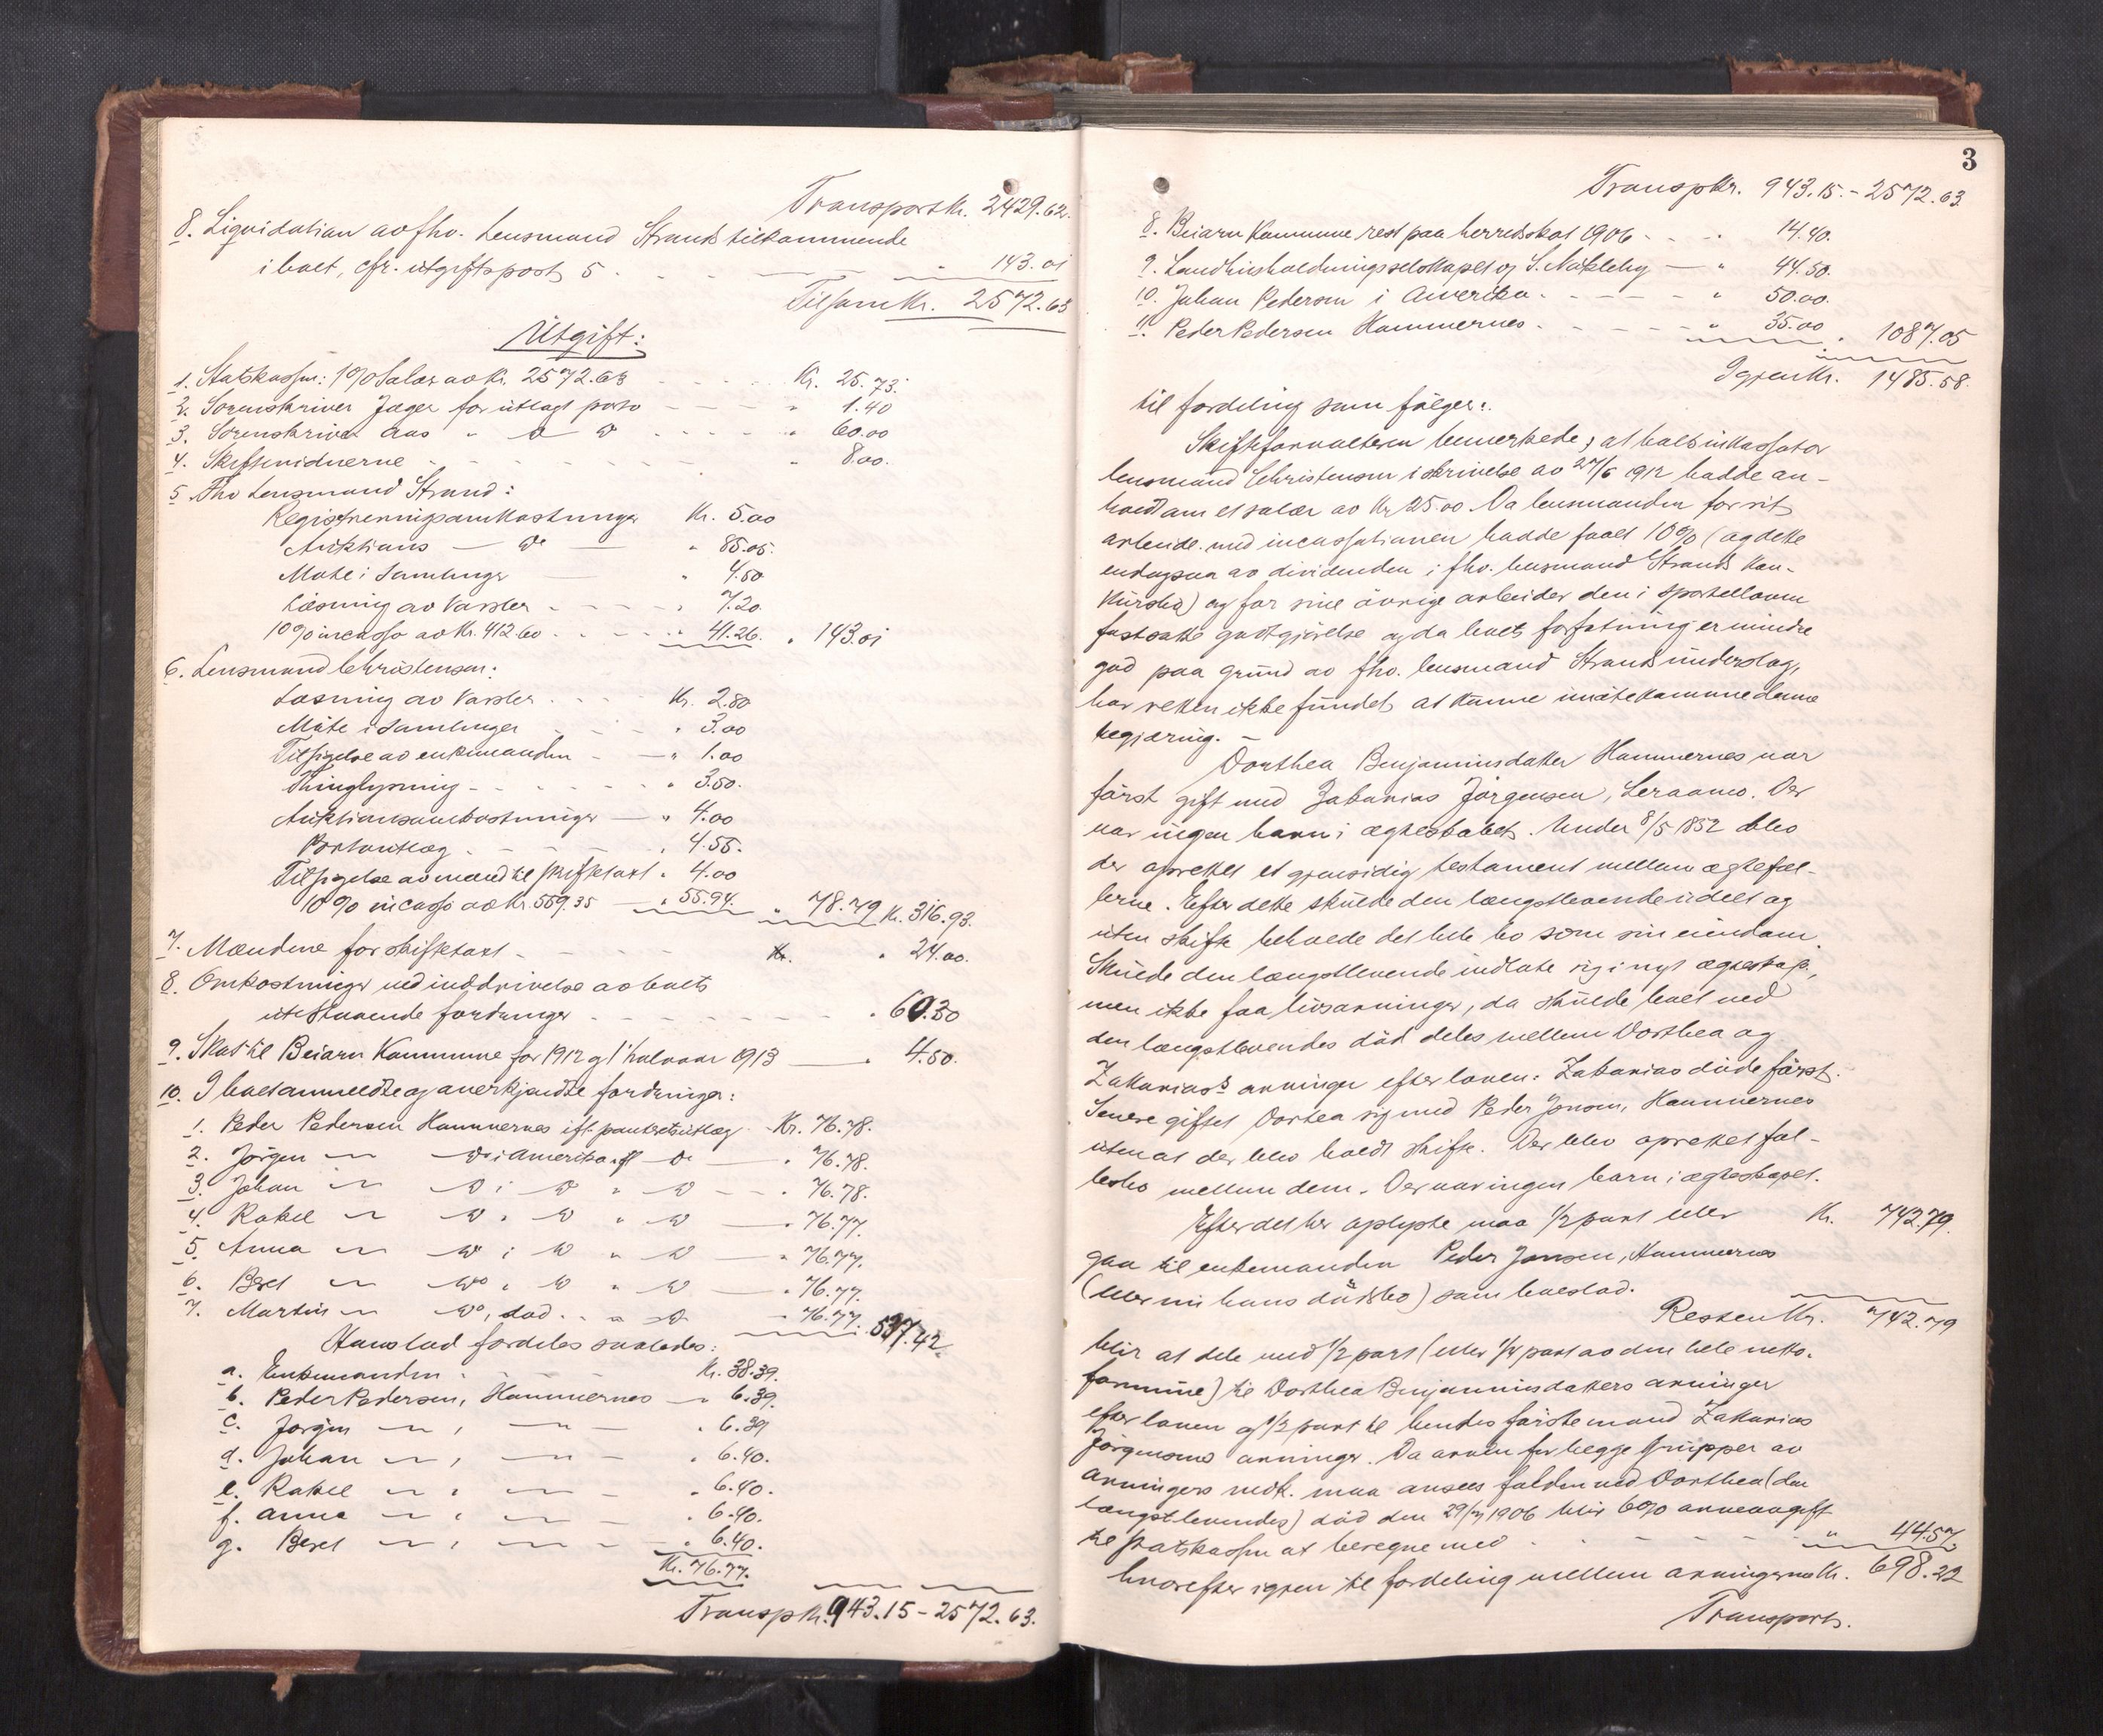 Transport kr. 2429.62.
8. Liquidation av fhv. Lensmand Strands tilkommende
i boet, cfr. utgiftspost 5 . - - " 143.01
Tilsam Kr. 2572.63
Utgift:
1. Statskassen: 1% Salær av kr. 2572.63 - - - - Kr. 25.73.
2. Sorenskriver Jæger for utlagt porto - - - " 1.40
3. Sorenskriver Aas " do do - - - - " 60.00
4. Skiftevidnerne - - - - - - " 8.00.
5. Fhv Lensmand Strand:
Registreringsomkostninger Kr. 5.00
Auktions — do — " 85.05.
Møte i Samlinger " 4.50
Læsning av Varsler - - - - " 7.20
10% incasso av Kr. 412.60 - - - - " 41.26. " 143.01
6. Lensmand Christensen:
Læsning av Varsler . - - Kr. 2.80
Møte i Samlinger - - " 3.00
Tilsigelse av enkemanden - — " 1.00
Thinglysning - - - - - " 3.50.
Auktionsomkostninger — " 4.00
Portoutlæg . - - - - " 4.55.
Tilsigelse av mænd til skiftetaxt " 4.00
10% incasso av kr. 559.35 — " 55.94. " 78.79 Kr. 316.93.
7. Mændene for skiftetaxt - - - - Kr. " 24.00.
8. Omkostninger ved inddrivelse av boets
utestaaende fordringer - - - - - - " 60.30
9. Skat til Beiarn Kommune for 1912 og 1' halvaar 1913 — " 4.50.
10. I boet anmeldte og anerkjendte fordringer:
1. Peder Pedersen Hammernes ifl. panteretsutlæg - Kr. 76.78.
2. Jörgen — " — do i Amerika ifl do — " 76.78.
3. Johan — " — do i do " do - - " 76.78.
4. Rakel — " — do " do " do — " 76.77.
5. Anna — " — do i do " do — " 76.77.
6. Beret — " — do " do " do — " 76.77.
7. Martin — " — do, död . . " do - " 76.77. " 537.42.
Hans lod fordeles saaledes:
a. Enkemanden . - - Kr. 38.39.
b. Peder Pedersen, Hammernes — " 6.39.
c. Jörgen — " — , — " — " 6.39
d. Johan — " — , — " — " 6.40.
e. Rakel — " — , — " — " 6.40.
f. Anna — " — , — " — " 6.40.
g. Beret — " — , — " — " 6.40.
Kr. 76.77.
Transp kr. 943.15 - 2572.63.
3
Transp Kr. 943.15. - 2572.63
8. Beiarn Kommune rest paa herredsskat 1906 - - " 14.40.
9. Landhusholdningsselskapet og S. Nakleby — " 44.50.
10. Johan Pedersen i Amerika - - - - - " 50.00.
11. Peder Pedersen Hammernes . - - - " 35.00 " 1087.05
Igjen Kr. 1485.58.
til fordeling som fölger:
Skifteforvalteren bemerkede, at boets inkassator
lensmand Christensen i skrivelse av 27/6 1912 hadde an-
holdt om et salær av Kr 25.00. Da lensmanden for sit
arbeide med incassationen hadde faat 10% (og dette
endogsaa av dividenden i fhv. lensmand Strands kon-
kursbo) og for sine övrige arbeider den i sportelloven
fastsatte godtgjörelse og da boets forfatning er mindre
god paa grund av fhv. lensmand Strands underslag,
har retten ikke fundet at kunne imötekomme denne
begjæring. -
Dorthea Benjaminsdatter Hammernes var
först gift med Zakarias Jörgensen, Leraamo. Der
var ingen barn i egteskabet. Under 8/5 1852 blev
der oprettet et gjensidig testament mellem ægtefæl-
lerne. Efter dette skulde den længstlevende udelt og
uten skifte beholde det hele bo som sin eiendom.
Skulde den længstlevende indlate sig i nyt ægteskap,
men ikke faa livsarvinger, da skulde boet ved
den længstlevendes död deles mellem Dorthea og
Zakarias's arvinger efter loven. Zakarias döde först.
Senere giftet Dorthea sig med Peder Jonsen, Hammernes
uten at der blev holdt skifte. Der blev oprettet fæl-
lesbo mellem dem. Der var ingen barn i ægteskapet.
Efter det her oplyste maa 1/2 part eller Kr. 742.79.
gaa til enkemanden Peder Jonsen, Hammernes
(eller nu hans dödsbo) som boeslod.
Resten Kr. 742.79
blir at dele med 1/2 part (eller 1/4 part av den hele netto-
formue) til Dorthea Benjaminsdatters arvinger
efter loven og 1/2 part til hendes förste mand Zakarias
Jörgensens arvinger. Da arven for begge grupper av
arvingers vedk. maa ansees falden ved Dorthea (den
længstlevendes) död den 29/7 1906 blir 6% arveavgift
til statskassen at beregne med . - - - - " 44.57
hvorefter igjen til fordeling mellem arvingerne Kr. 698.22
Transport.